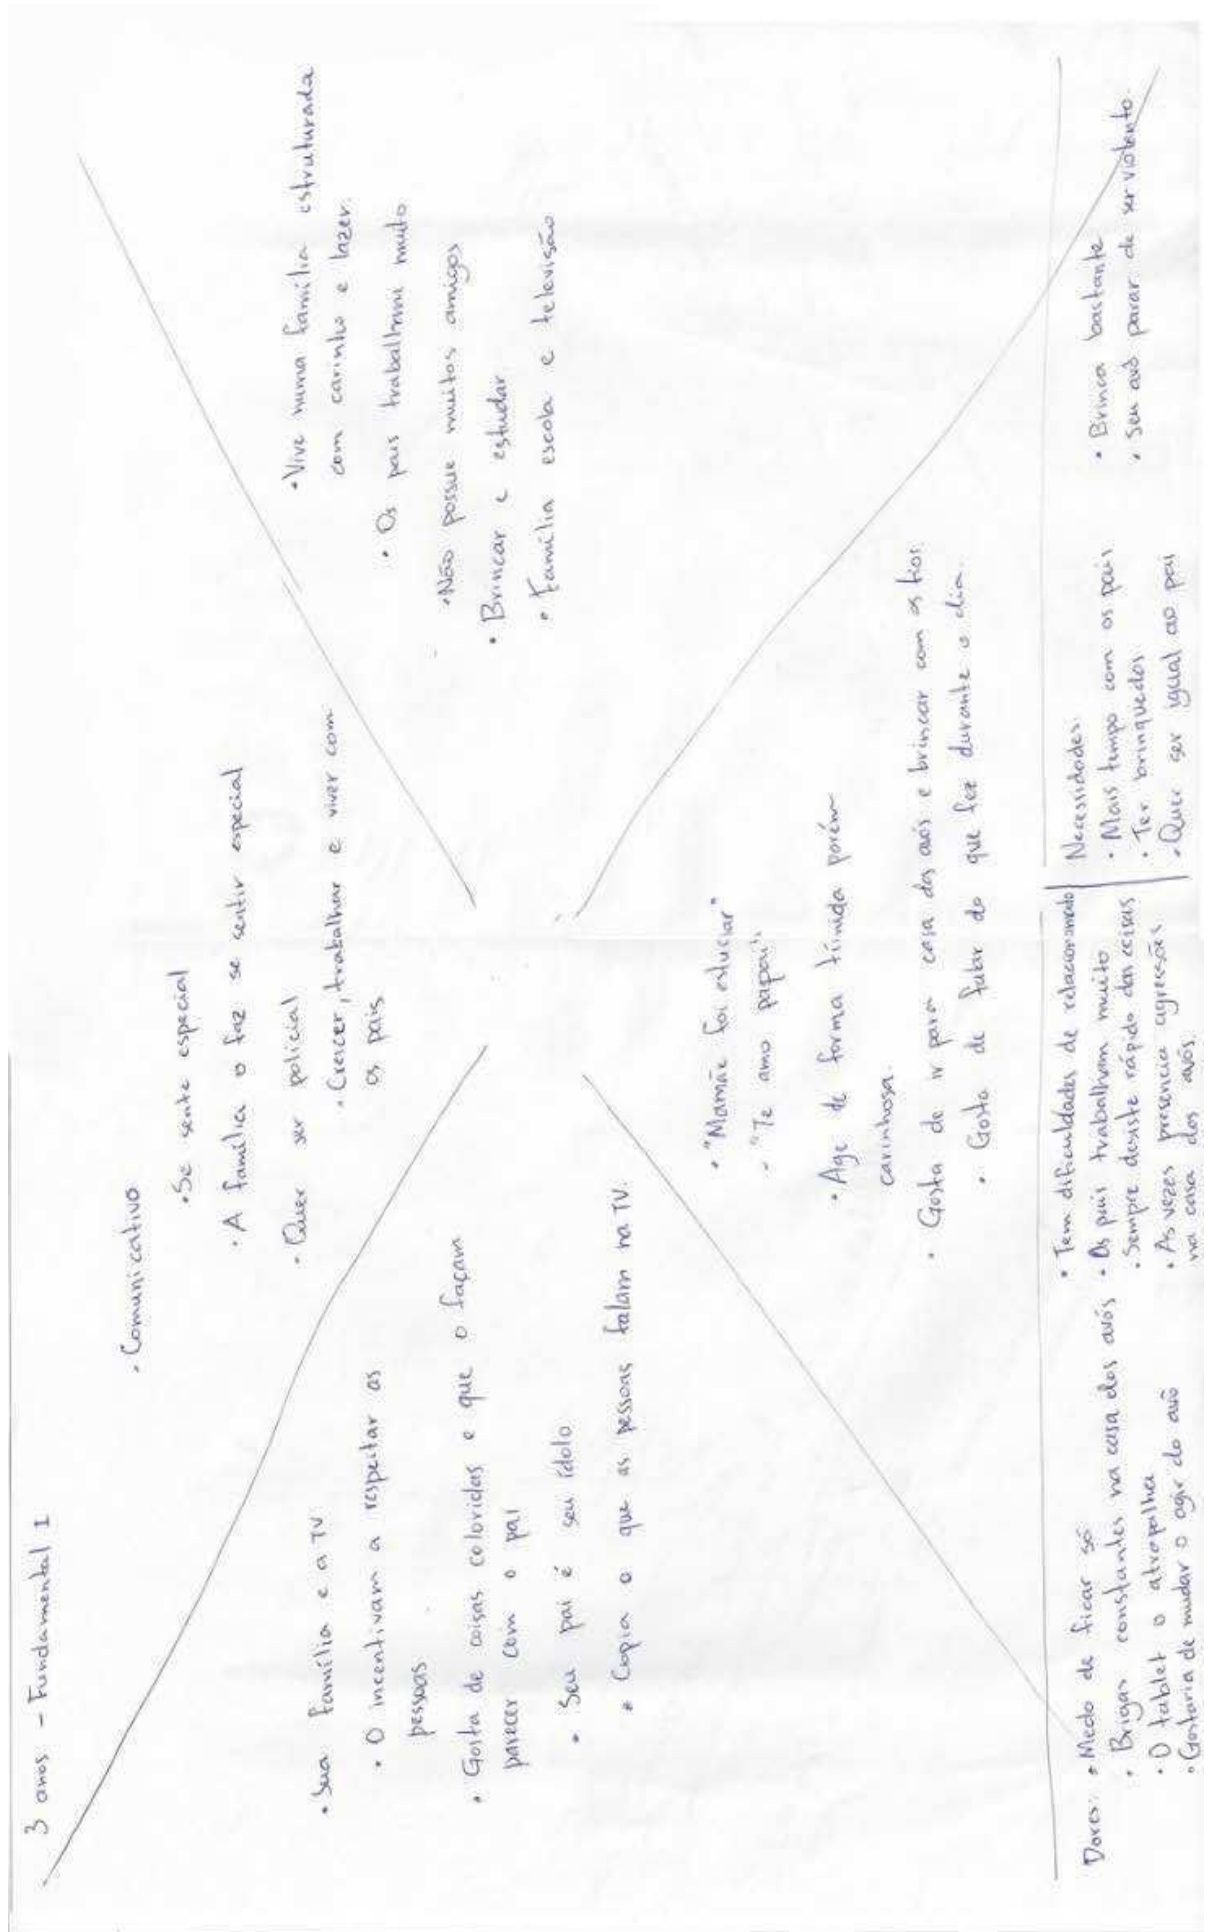 3 anos - Fundamental I
• Comunicativo
• Se sente especial
• A família o faz se sentir especial
• Quer ser policial
• Crescer, trabalhar e viver com
os pais
• Sua família e a TV
• O incentivam a respeitar as
pessoas
• Gosta de coisas coloridas e que o façam
parecer com o pai
• Seu pai é seu ídolo
• Copia o que as pessoas falam na TV.
• Vive numa família estruturada
com carinho e lazer.
• Os pais trabalham muito
• Não possue muitos amigos
• Brincar e estudar
• Família escola e televisão
• "Mamãe foi estudar"
- "Te amo papai"
• Age de forma tímida porém
carinhosa.
• Gosta de ir para casa dos avós e brincar com os tios.
• Gosta de falar do que fez durante o dia.
Dores: • Medo de ficar só
• Brigas constantes na casa dos avós
• O tablet o atrapalha
• Gostaria de mudar o agir do avô
• Tem dificuldades de relacionamento
• Os pais trabalham muito
• Sempre desiste rápido das coisas
• As vezes presencia agressões
na casa dos avós.
Necessidades:
• Mais tempo com os pais
• Ter brinquedos
• Quer ser igual ao pai
• Brinca bastante
• Seu avô parar de ser violento.